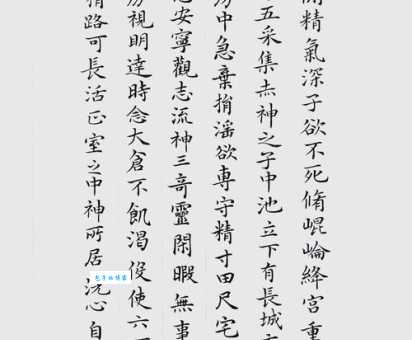 精氣深子欲不死脩崐崘絳宮重
五采集赤神之子中池立下有長城
中急棄捐淫欲專守精寸田尺宅
安寧觀志流神三奇靈閑暇無事
視明達時念大倉不飢渴伇使六
路可長活正室之中神所居洗心自